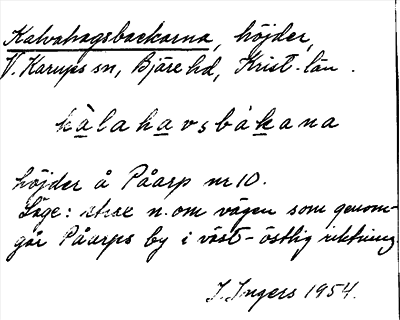 Kalvahagsbackarna, höjder,
V. Karups sn, Bjäre hd, Krist. län.
kàlahavsbákana
höjder å Påarp nr 10.
Läge: strax n. om vägen som genom-
går Påarps by i väst-östlig riktning.
I. Ingers 1954.